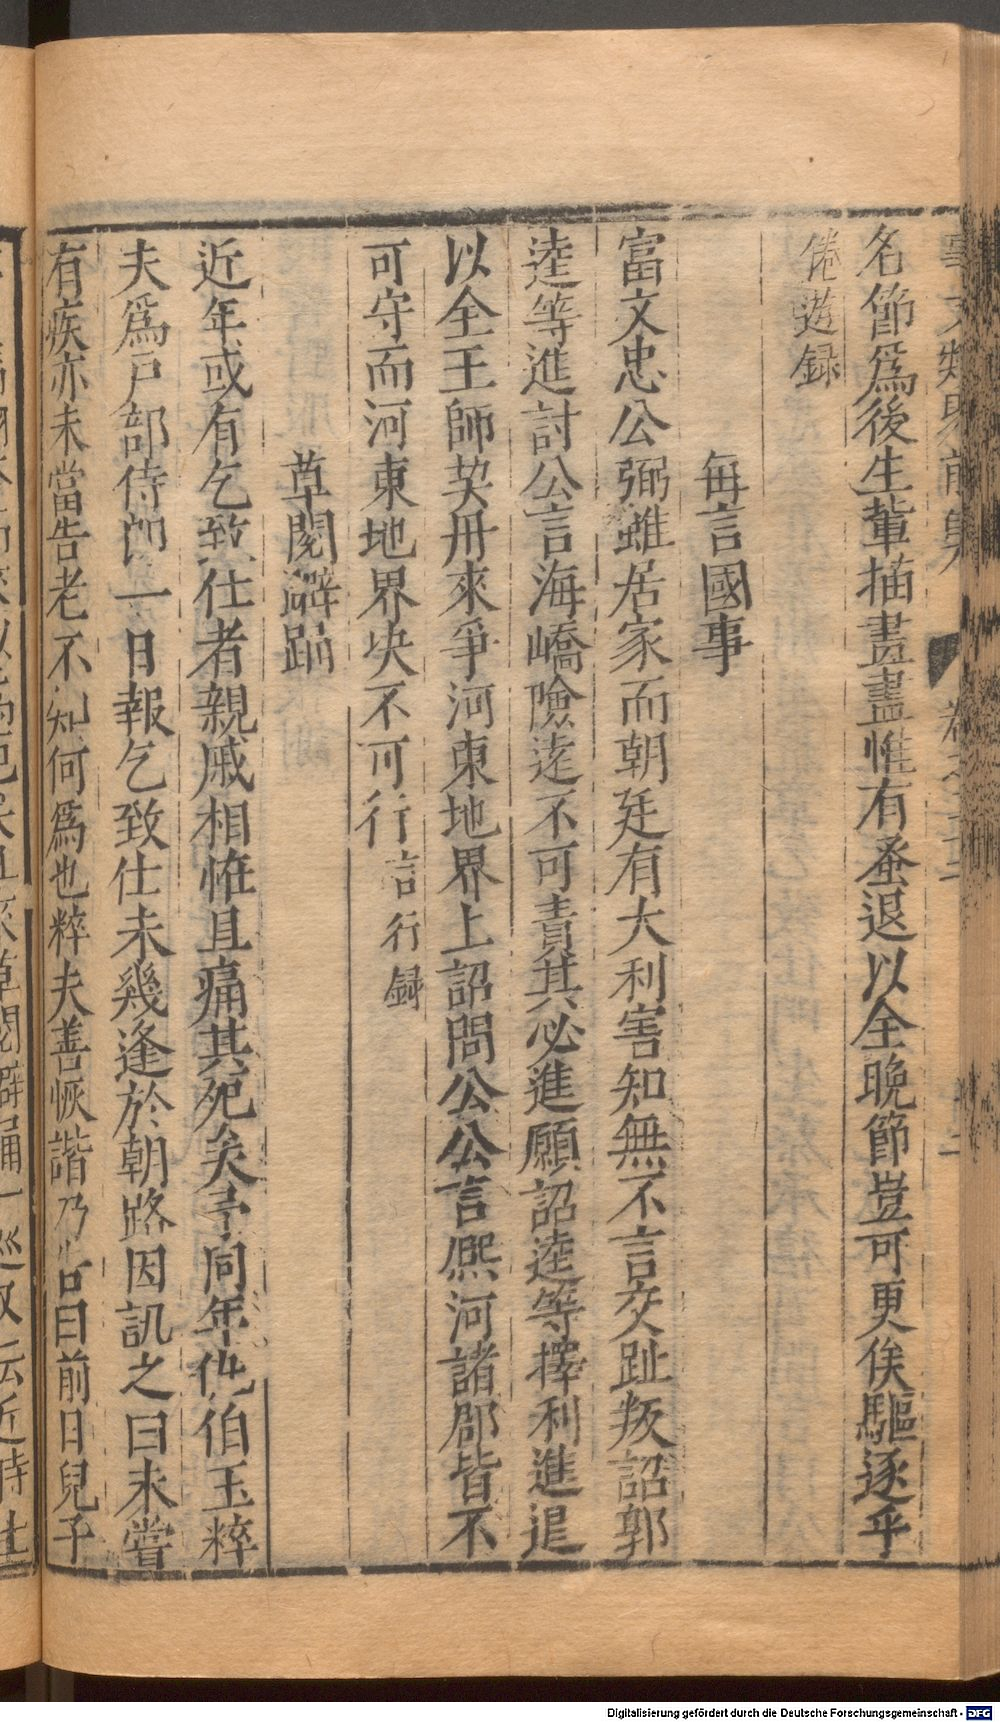 事文類聚前集 卷之三十二
名節爲後生輩描畫盡惟有蚤退以全晚節豈可更俟驅逐乎
倦遊録
每言國事
富文忠公弼雖居家而朝廷有大利害知無不言交趾叛詔郭
逵等進討公言海嶠險遠不可責其必進願詔逵等擇利進退
以全王師契丹來爭河東地界上詔問公公言熈河諸郡皆不
可守而河東地界决不可行 言行録
草閣澼踊
近年或有乞致仕者親戚相惟且痛其死矣予同年仇伯玉粹
夫爲戸部侍郎一日報乞致仕未幾逢於朝路因訊之曰未嘗
有疾亦未當告老不知何爲也粹夫善恢諧乃告曰前日兒子
Digitalisierung gefördert durch die Deutsche Forschungsgemeinschaft - DFG